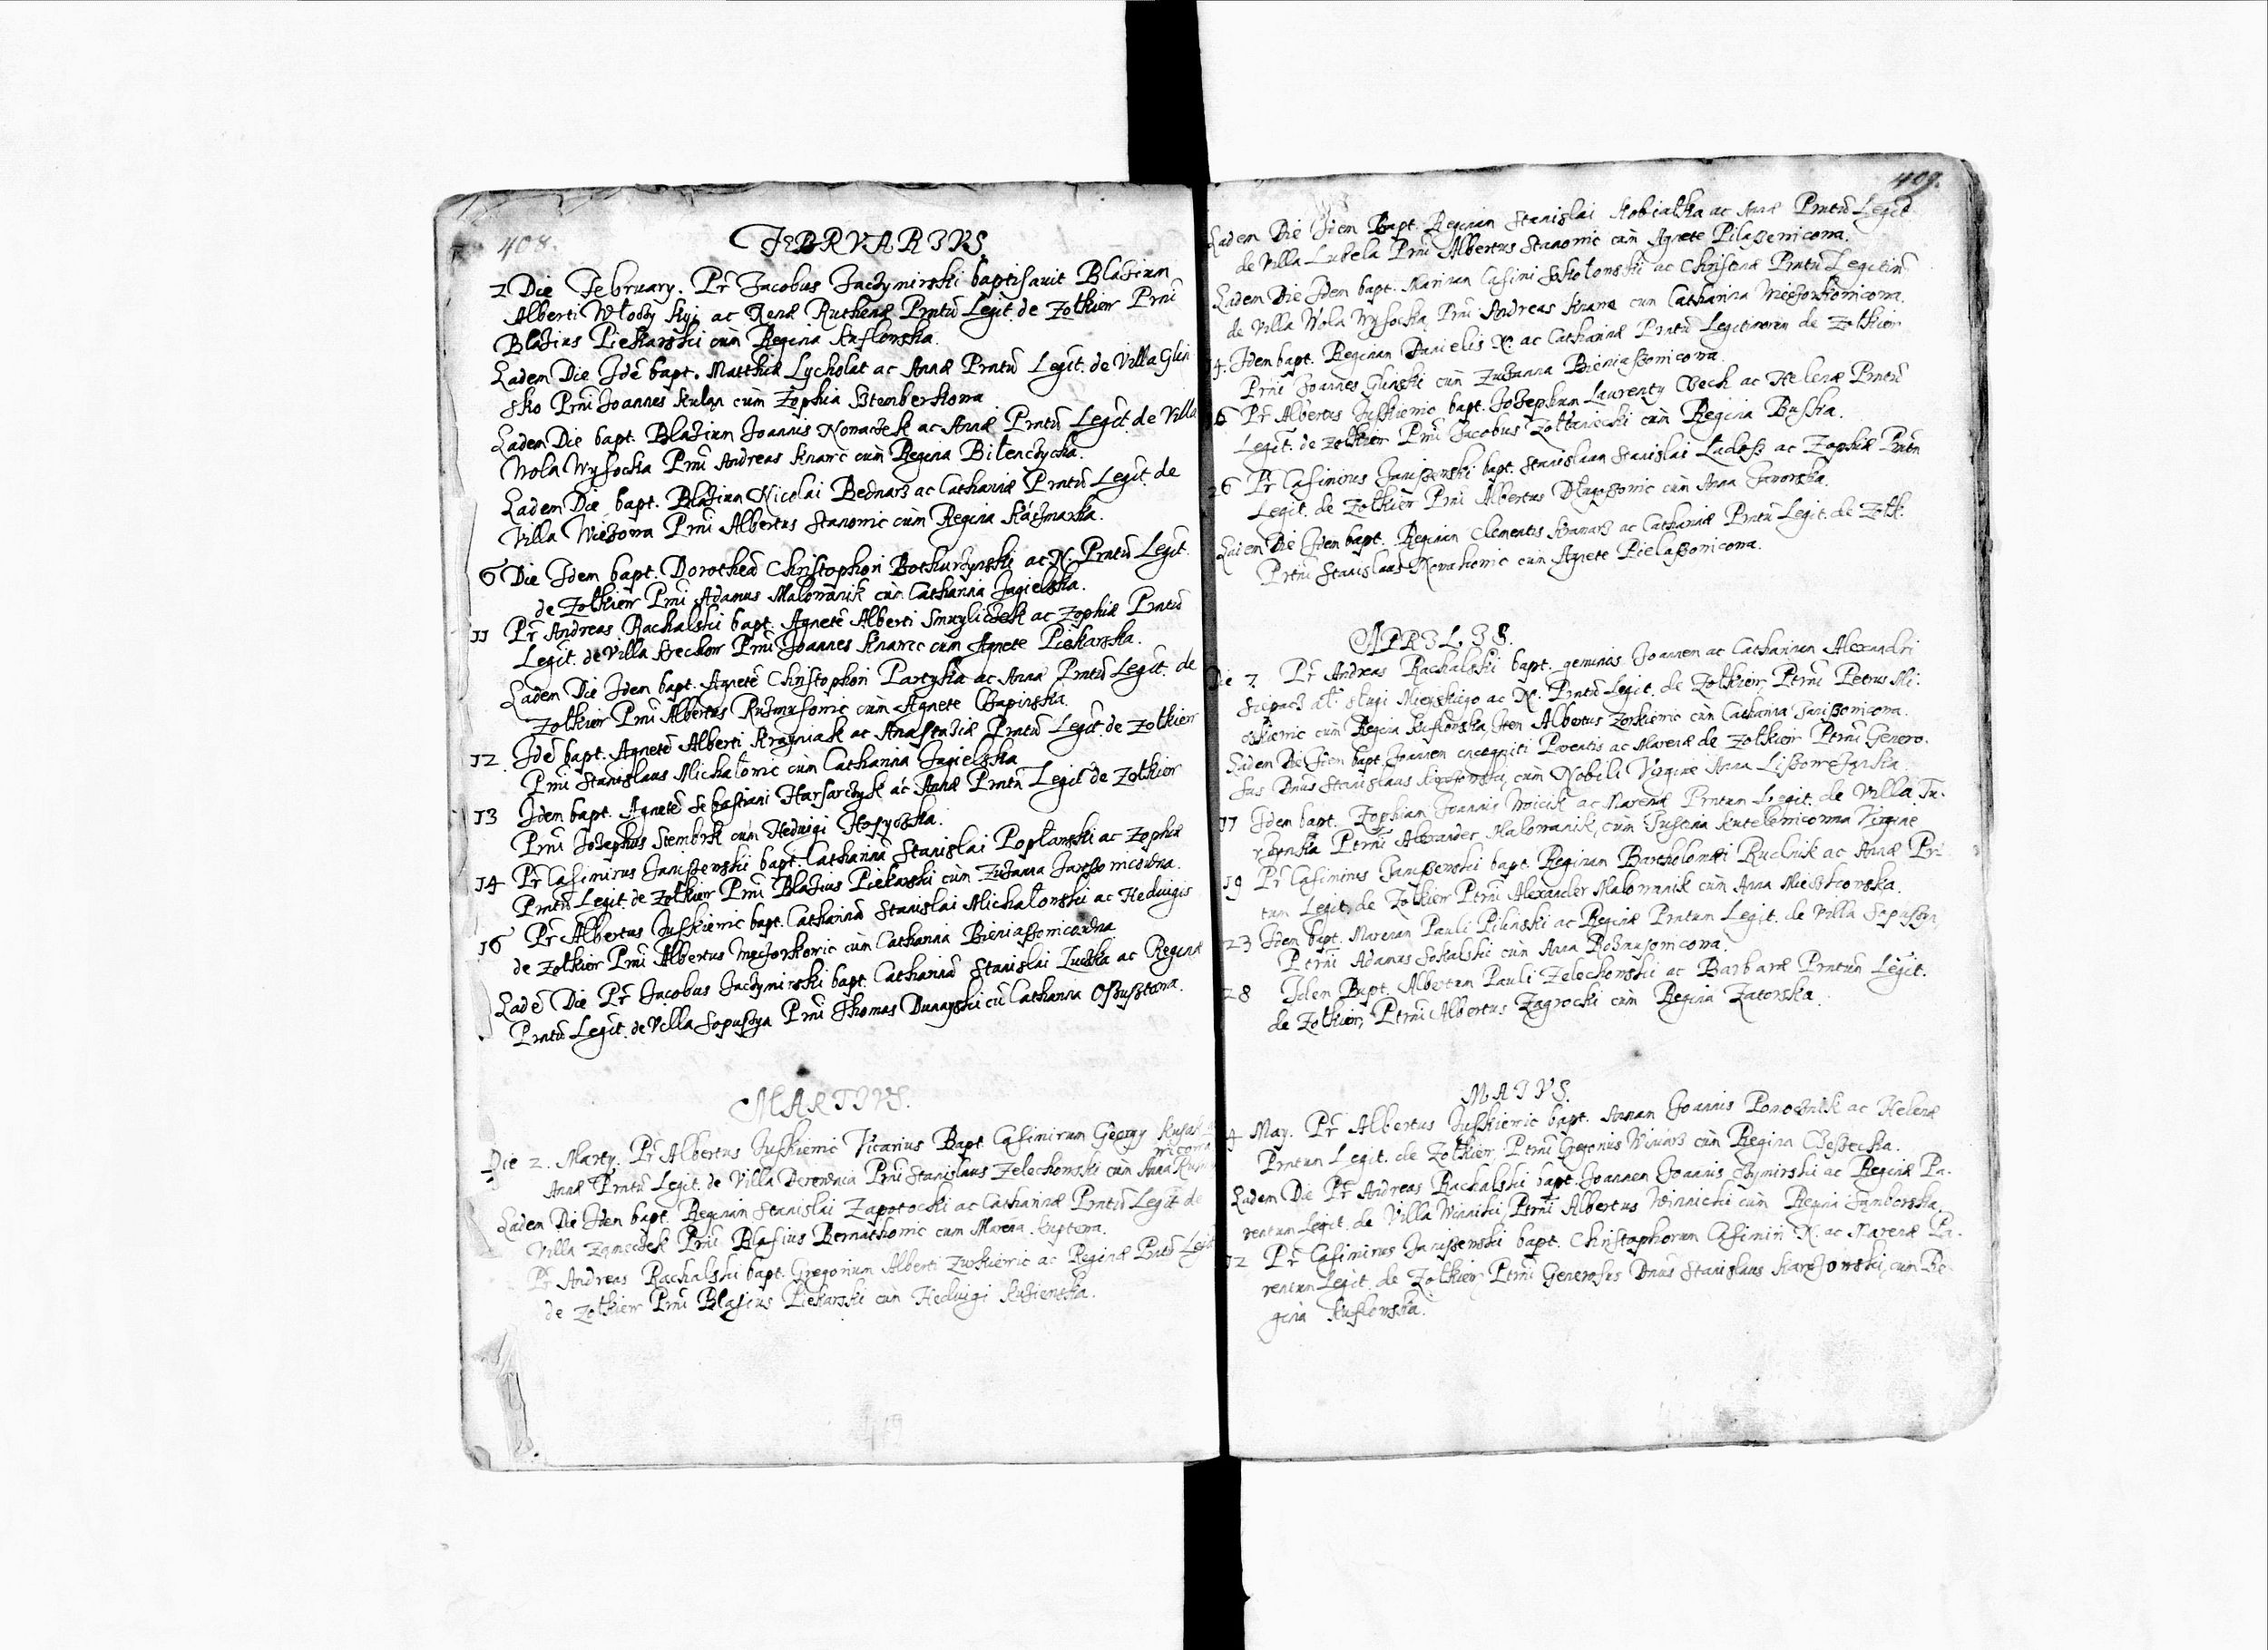 408.
FEBRVARIVS
2 Die February. Pr Jacobus Jaczymirski baptisauit Blasium
Alberti Włoddy Kyi ac Renæ Ruthenæ Prntũ Legit. de Zołkiew Prni
Blasius Piekarski cum Regina Kuslowska.
Eadem Die Idẽ bapt. Matthiã Lycholat ac Annæ Prntũ Legit. de Villa Glin
sko Prni Joannes Kulan cum Zophia Sztemberkowa
Eadem Die bapt. Blasium Joannis Nowaczek ac Annæ Prntũ Legit. de Villa
Wola Wysocka Prni Andreas Knarc cum Regina Bilenczycka.
Eadem Die bapt. Blasium Nicolai Bednarz ac Catharinæ Prntũ Legit. de
Villa Wiezowa Prni Albertus Stanowic cum Regina Kaczmarka.
6 Die Idem bapt. Dorotheã Christophori Bothurzynski ac N. Prntũ Legit.
de Zołkiew Prni Adamus Malowanik cum Catharina Jagielska.
11 Pr Andreas Rachalski bapt. Agnetẽ Alberti Smyliczek ac Zophiæ Prntũ
Legit. de Villa Krechow Prni Joannes Knarcc cum Agnete Piekarska.
Eadem Die Idem bapt. Agnetẽ Christophori Partyka ac Annæ Prntũ Legit. de
Zołkiew Prni Albertus Kuzmusowic cum Agnete Czapinska.
12. Idẽ bapt. Agnetẽ Alberti Krayniak ac Anastasiæ Prntũ Legit. de Zołkiew
Prni Stanislaus Michałowic cum Catharina Jagielska
13 Idem bapt. Agnetẽ Sebastiani Harsarczyk ac Annæ Prntũ Legit de Zołkiew
Prni Josephus Stembrk cum Heduigi
14 Pr Casimirus Januszewski bapt. Catharinã Stanislai Popławski ac Zophiæ
Prntũ Legit. de Zołkiew Prni Blasius Piekarski cum Zuzanna
16 Pr Albertus Juskiewic bapt. Catharinã Stanislai Michałowski ac Heduigis
de Zołkiew Prni Albertus cum Catharina Bieniaszowicowna
Eadẽ Die Pr Jacobus Jaczymirski bapt. Catharinã Stanislai Luczka ac Reginæ
Prntũ Legit. de Villa Sopuszya Prni Thomas Dunayski cũ Catharina
MARTIVS.
Die 2. Marty. Pr Albertus Juskiewic Vicarius Bapt. Casimirum Georgy
Annæ Prntũ Legit. de Villa Derewnia Prni Stanislaus Zelechowski cum Anna
Eadem Die Idem bapt. Reginam Stanislai Zapotocki ac Catharinæ Prntũ Legit de
Villa Zameczek Prni Blasius Bernathowic cum Marena Kuptowa.
Pr Andreas Rachalski bapt. Gregorium Alberti Zurkiewic ac Reginæ Prntũ Legit
de Zołkiew Prni Blasius Piekarski cum Heduigi Kusienska.
409.
Eadem Die Idem Bapt. Reginam Stanislai Kobiałka ac Annæ Prntũ Legit.
de Villa Lubela Prni Albertus Stanowic cum Agnete Pilaszewicowa.
Eadem Die Idem bapt. Marinam Casimi Sokołowski ac Christinæ Prntũ Legitim
de Villa Wola Wysocka Prni Andreas Knarc cum Catharina
14. Idem bapt. Reginam Danielis N. ac Catharinæ Prntũ Legitimorum de Zołkiew
Prni Joannes Glinski cum Zuzanna Bieniaszowicowa.
16 Pr Albertus Juskiewic bapt. Josephum Laurenty Czech ac Helenæ Prntũ
Legit. de Zołkiew Prni Jacobus Zołtaniecki cum Regina Buska.
26 Pr Casimirus Januszewski bapt. Stanislaum Stanislai Ladosz ac Zophiæ Prntũ
Legit. de Zołkiew Prni Albertus Długoszowic cum Anna Jaworska.
Eadem Die Idem bapt. Reginam Clementis Kramarz ac Catharinæ Prntũ Legit. de Zołk.
Prtni Stanislaus Nowakowic cum Agnete Pielaszowicowa.
APRILIS.
Die 7. Pr Andreas Rachalski bapt. geminos Joannem ac Catharinam Alexandri
ac N. Prntũ Legit. de Zołkiew, Ptrni Petrus Mi-
oskiewic cum Regina Kuslowska, Item Albertus Zorkiewic cum Catharina Janiszowicowa.
Eadem Die Idem bapt. Joannem incogniti Parentis ac Marenæ de Zołkiew Ptrni Genero-
sus Dnus Stanislaus cum Nobili Virgine Anna
17 Idem bapt. Zophiam Joannis Woicik ac Marenæ Prntum Legit. de Villa Tu-
rzynka Ptrni Alexander Malowanik, cum Justina Kutelewicowna Virgine
19 Pr Casimirus Januszewski bapt. Reginam Bartholomæi Rudnik ac Annæ Prn-
tum Legit. de Zołkiew Ptrni Alexander Malowanik cum Anna Mieszkowska.
23 Idem bapt. Marenam Pauli Pilinski ac Reginæ Prntum Legit. de Villa Sopuszyn
Ptrni Adamus Sokalski cum Anna Roznusowicowa.
28 Idem Bapt. Albertum Pauli Zelechowski ac Barbaræ Prntum Legit.
de Zołkiew, Ptrni Albertus Zagrocki cum Regina Zatorska.
MAIVS.
4 May. Pr Albertus Juskiewic bapt. Annam Joannis Powoznik ac Helenæ
Prntum Legit. de Zołkiew, Ptrni Gregorius Winiarz cum Regina
Eadem Die Pr Andreas Rachalski bapt. Joannem Joannis Czymirski ac Reginæ Pa-
rentum Legit. de Villa Winniki Ptrni Albertus Winnicki cum Regina Samborska.
12 Pr Casimirus Januszewski bapt. Christophorum Casimiri N. ac Marenæ Pa-
rentum Legit. de Zołkiew Ptrni Generosus Dnus Stanislaus Karczowski, cum Re-
gina Kuslowska.